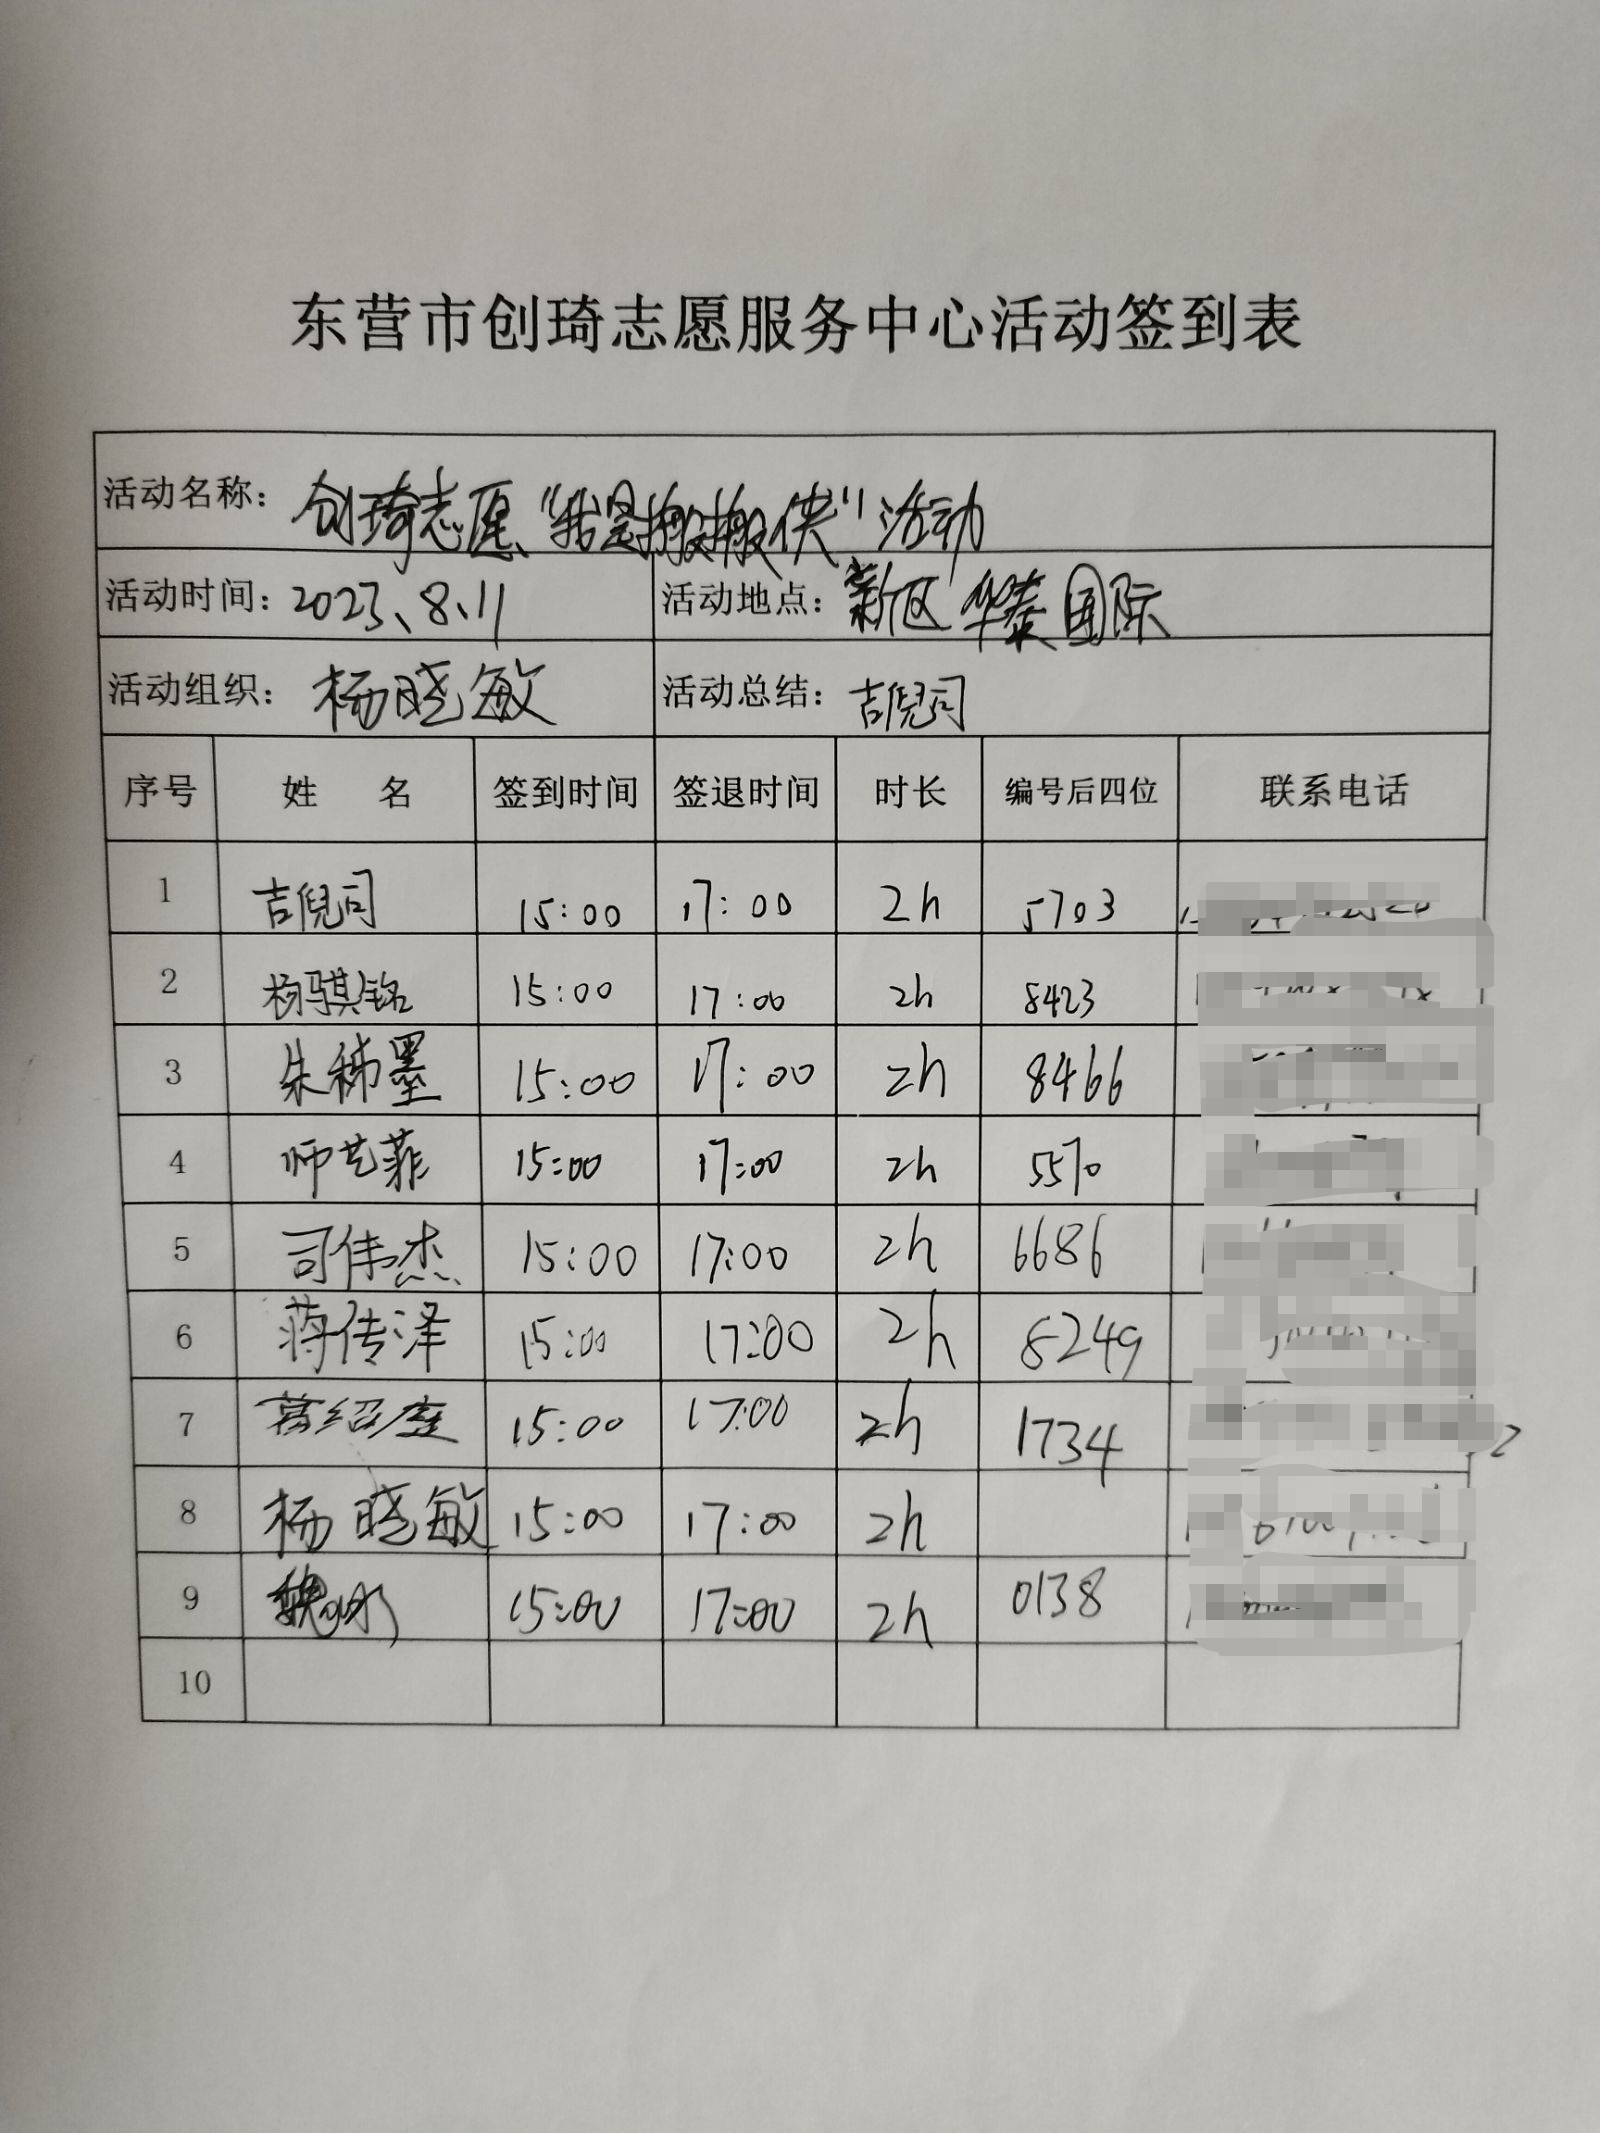 东营市创琦志愿服务中心活动签到表
活动名称：创琦志愿“我是搬搬侠”活动
活动时间：2023、8、11 活动地点：新区华泰国际
活动组织：杨晓敏 活动总结：吉倪司
序号 姓名 签到时间 签退时间 时长 编号后四位 联系电话
1 吉倪司 15:00 17:00 2h 5703
2 杨骐铭 15:00 17:00 2h 8423
3 朱稀墨 15:00 17:00 2h 8466
4 师艺菲 15:00 17:00 2h 5570
5 司伟杰 15:00 17:00 2h 6686
6 蒋传泽 15:00 17:00 2h 8249
7 15:00 17:00 2h 1734
8 杨晓敏 15:00 17:00 2h
9 15:00 17:00 2h 0138
10